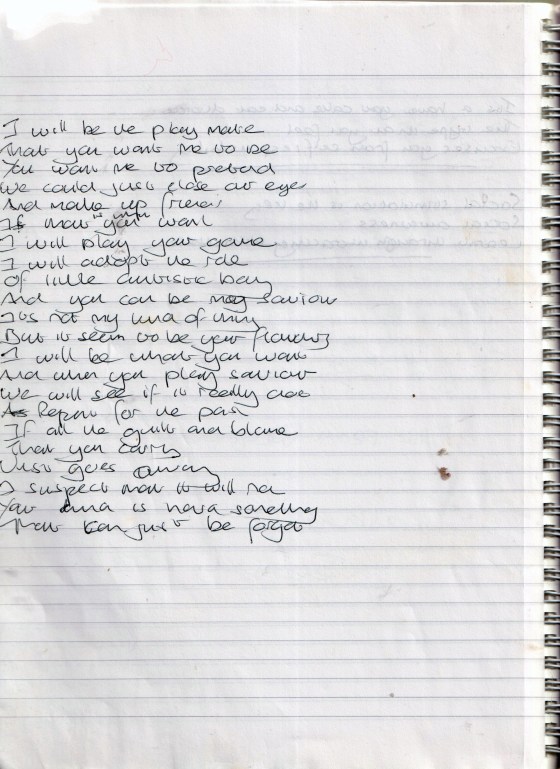 I will be the play mate
That you want me to be
You want me to pretend
We could just close our eyes
And make up friends
If that is what you want
I will play your game
I will adopt the role
Of little autistic boy
And you can be my saviour
Its not my kind of thing
But it seem to be your
I will be what you want
And when you play saviour
We will see if it really does
Repent for the past
If all the guilt and blame
That you carry
Just goes away
I suspect that it will not
Your kind is never something
That can just be forgot